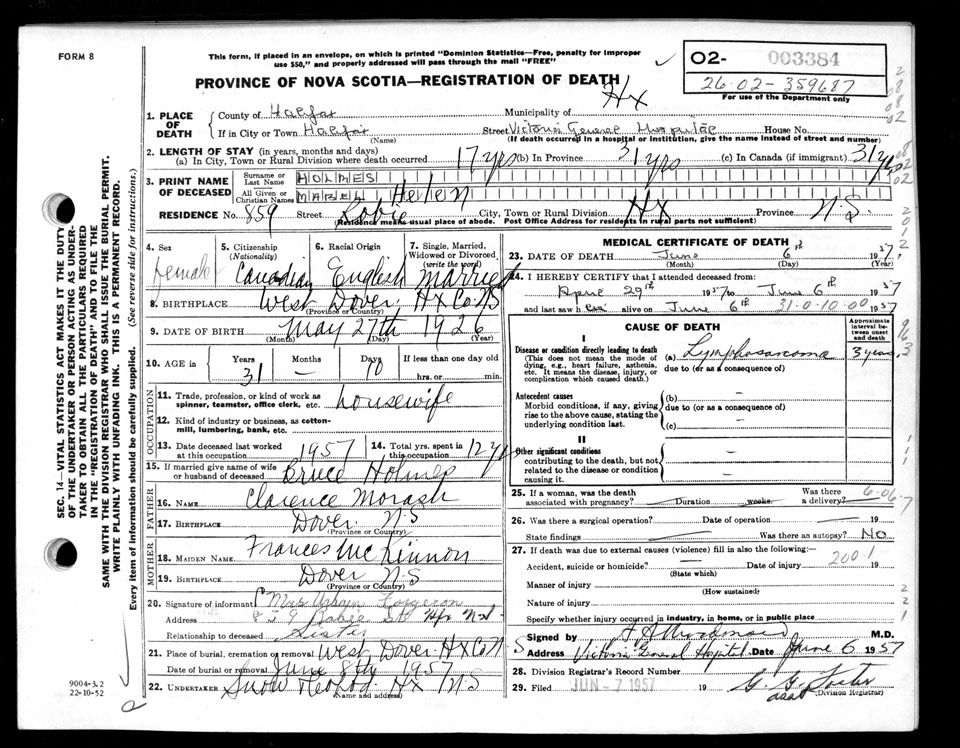 FORM 8
This form, if placed in an envelope, on which is printed "Dominion Statistics—Free, penalty for improper
use $50," and properly addressed will pass through the mail "FREE"
PROVINCE OF NOVA SCOTIA—REGISTRATION OF DEATH
Hx
02- 003384
26-02-359687
For use of the Department only
1. PLACE OF DEATH
County of Halifax Municipality of
If in City or Town Halifax Street Victoria General Hospital House No.
(Name) (If death occurred in a hospital or institution, give the name instead of street and number)
2. LENGTH OF STAY (in years, months and days)
(a) In City, Town or Rural Division where death occurred 17 yrs (b) In Province 31 yrs (c) In Canada (if immigrant) 31 yrs
3. PRINT NAME OF DECEASED
Surname or Last Name HOLMES
All Given or Christian Names MABEL Helen
RESIDENCE No. 859 Street Robie City, Town or Rural Division Hx Province N.S.
(Residence means usual place of abode. Post Office Address for residents in rural parts not sufficient)
4. Sex female
5. Citizenship (Nationality) Canadian
6. Racial Origin English
7. Single, Married, Widowed or Divorced (write the word) Married
8. BIRTHPLACE West Dover Hx Co NS
(Province or Country)
9. DATE OF BIRTH May 27th 1926
(Month) (Day) (Year)
10. AGE Years 31 Months — Days 10 If less than one day old
hrs. or min.
OCCUPATION
11. Trade, profession, or kind of work as
spinner, teamster, office clerk, etc. housewife
12. Kind of industry or business, as cotton-
mill, lumbering, bank, etc.
13. Date deceased last worked
at this occupation 1957
14. Total yrs. spent in
this occupation 12 yrs
15. If married give name of wife
or husband of deceased Bruce Holmes
FATHER
16. NAME Clarence Morash
17. BIRTHPLACE Dover N.S
(Province or Country)
MOTHER
18. MAIDEN NAME Frances McKinnon
19. BIRTHPLACE Dover N-S
(Province or Country)
20. Signature of informant Mrs Urban
Address St Hfx N.S.
Relationship to deceased Sister
21. Place of burial, cremation or removal West Dover Hx Co N
Date of burial or removal June 8th 1957
22. UNDERTAKER Snow Hx N.S
(Name and address)
MEDICAL CERTIFICATE OF DEATH
23. DATE OF DEATH June 6th 1957
(Month) (Day) (Year)
24. I HEREBY CERTIFY that I attended deceased from:
April 29th 1957 to June 6th 1957
and last saw h alive on June 6th 1957
31-0-10-00
CAUSE OF DEATH
Approximate interval between onset and death
I
Disease or condition directly leading to death
(This does not mean the mode of
dying, e.g., heart failure, asthenia,
etc. It means the disease, injury, or
complication which caused death.)
(a) Lymphosarcoma 3 years
due to (or as a consequence of)
Antecedent causes
Morbid conditions, if any, giving
rise to the above cause, stating the
underlying condition last.
(b) —
due to (or as a consequence of)
(c) —
II
Other significant conditions
contributing to the death, but not
related to the disease or condition
causing it.
—
25. If a woman, was the death
associated with pregnancy? Duration weeks. Was there
a delivery?
6-06-7
26. Was there a surgical operation? Date of operation — 19
State findings Was there an autopsy? No
27. If death was due to external causes (violence) fill in also the following:—
Accident, suicide or homicide? — Date of injury 19
(State which)
200-1
Manner of injury
(How sustained)
Nature of injury
Specify whether injury occurred in industry, in home, or in public place
Signed by M.D.
Address Victoria General Hospital Date June 6 1957
28. Division Registrar's Record Number
29. Filed JUN - 7 1957 19 G. G. Foster
(Division Registrar)
SEC. 14—VITAL STATISTICS ACT MAKES IT THE DUTY
OF THE UNDERTAKER OR PERSON ACTING AS UNDER-
TAKER TO OBTAIN ALL THE PARTICULARS REQUIRED
IN THE "REGISTRATION OF DEATH" AND TO FILE THE
SAME WITH THE DIVISION REGISTRAR WHO SHALL ISSUE THE BURIAL PERMIT.
WRITE PLAINLY WITH UNFADING INK. THIS IS A PERMANENT RECORD.
Every item of information should be carefully supplied. (See reverse side for instructions.)
9004-3.2
22-10-52